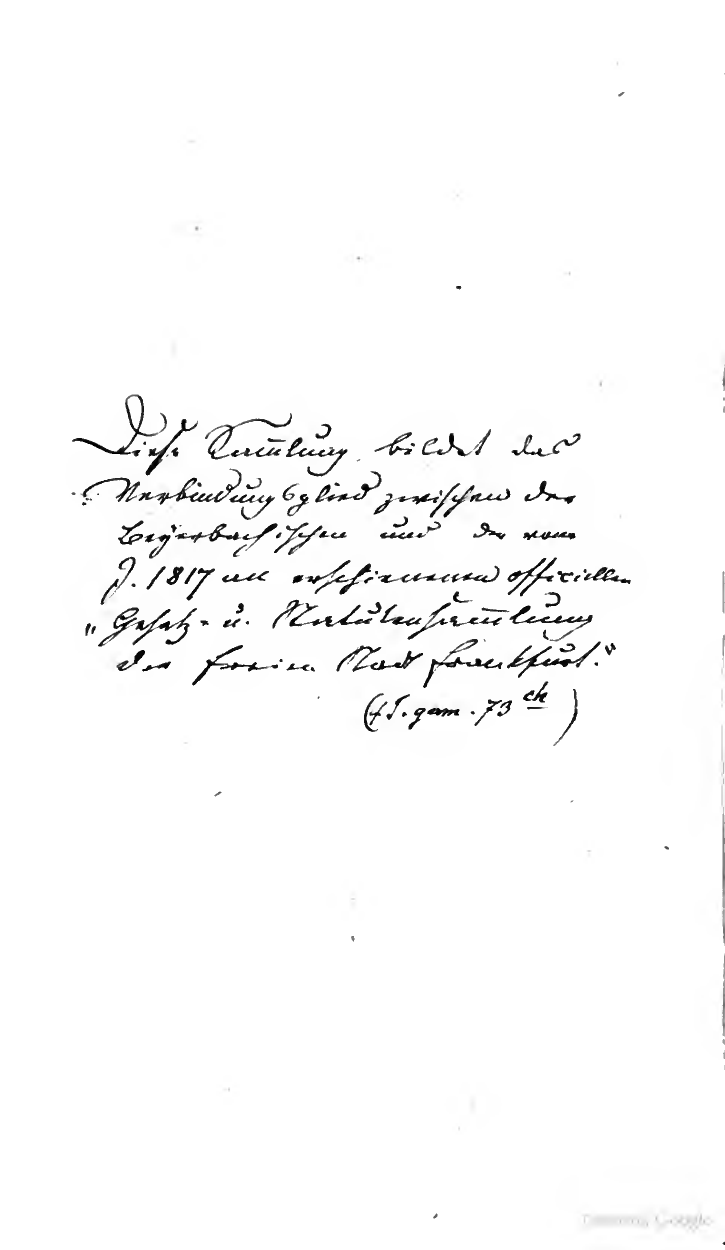 Diese Sammlung bildet das
Verbindungsglied zwischen der
Beyerbachischen und der vom
J. 1817 an erschienenen officiellen
„Gesetz- u. Statutensammlung
der freien Stadt Frankfurt.“
(J. germ. 73 ch)
Google